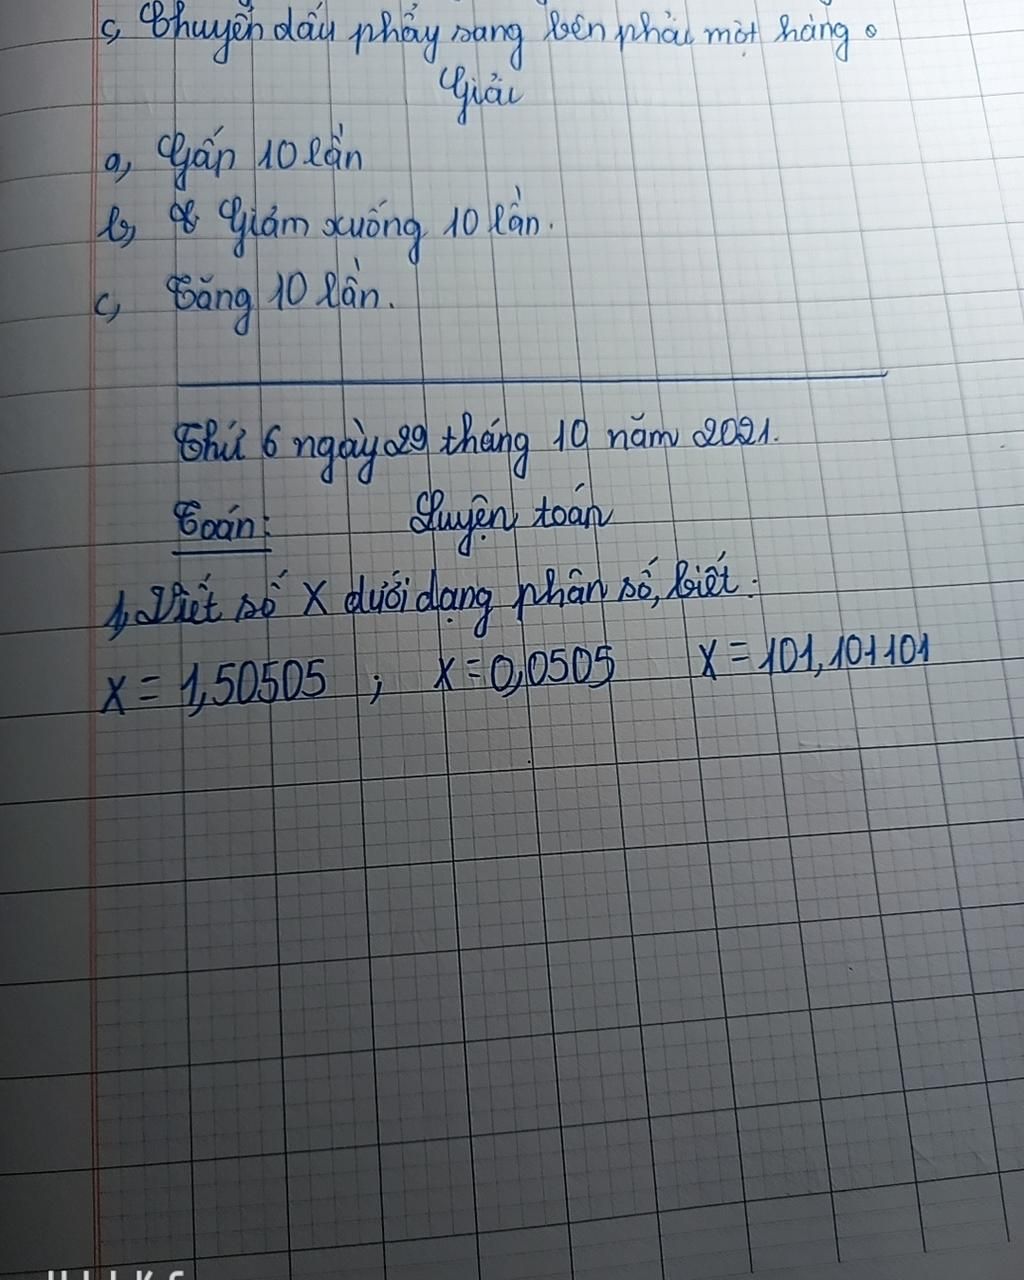 c, Chuyển dấu phẩy sang bên phải một hàng.
Giải
a, Gấp 10 lần
b, Giảm xuống 10 lần.
c, Tăng 10 lần.
Thứ 6 ngày 29 tháng 10 năm 2021.
Toán: Luyện toán
1, Viết số X dưới dạng phân số, biết:
X = 1,50505 ; X = 0,0505 X = 101,101101